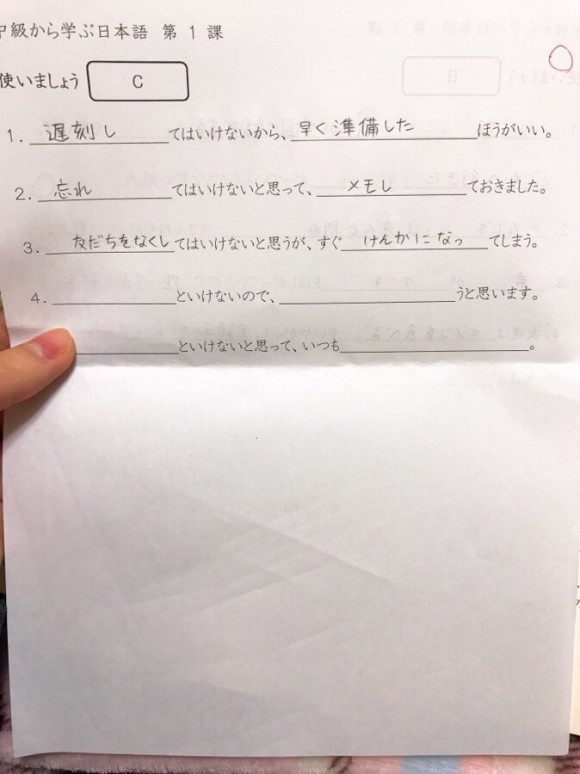 中級から学ぶ日本語 第 1 課
使いましょう C
1. 遅刻し てはいけないから、 早く準備した ほうがいい。
2. 忘れ てはいけないと思って、 メモし ておきました。
3. 友だちをなくし てはいけないと思うが、すぐ けんかになっ てしまう。
4. といけないので、 うと思います。
といけないと思って、いつも 。